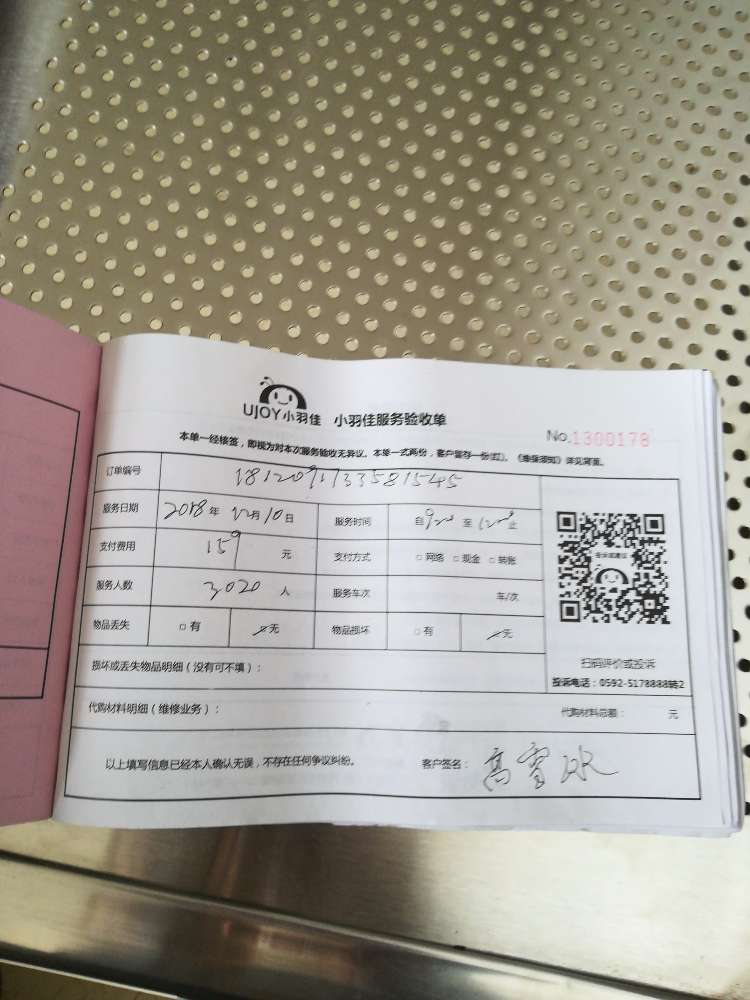 UJOY小羽佳 小羽佳服务验收单
No.1300178
本单一经接签，即视为对本次服务验收无异议。本单一式两份，客户留存一份(红)。《维保须知》详见背面。
订单编号 1812091733581545
服务日期 2018年12月10日 服务时间 自9:00至12:00止
支付费用 159元 支付方式 □网络 □现金 □转账
服务人数 3020人 服务车次 车/次
物品丢失 □有 ☑无 物品损坏 □有 ☑无
扫码评价或投诉
投诉电话：0592-5178888转2
损坏或丢失物品明细（没有可不填）：
代购材料明细（维修业务）： 代购材料总额： 元
以上填写信息已经本人确认无误，不存在任何争议纠纷。 客户签名：高雪冰